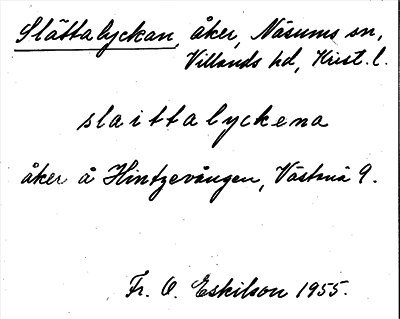 Slättalyckan, åker, Näsums sn,
Villands hd, Krist. l.
slaittalyckena
åker å Hintzevången, Västanå 9.
Fr. O. Eskilson 1955.